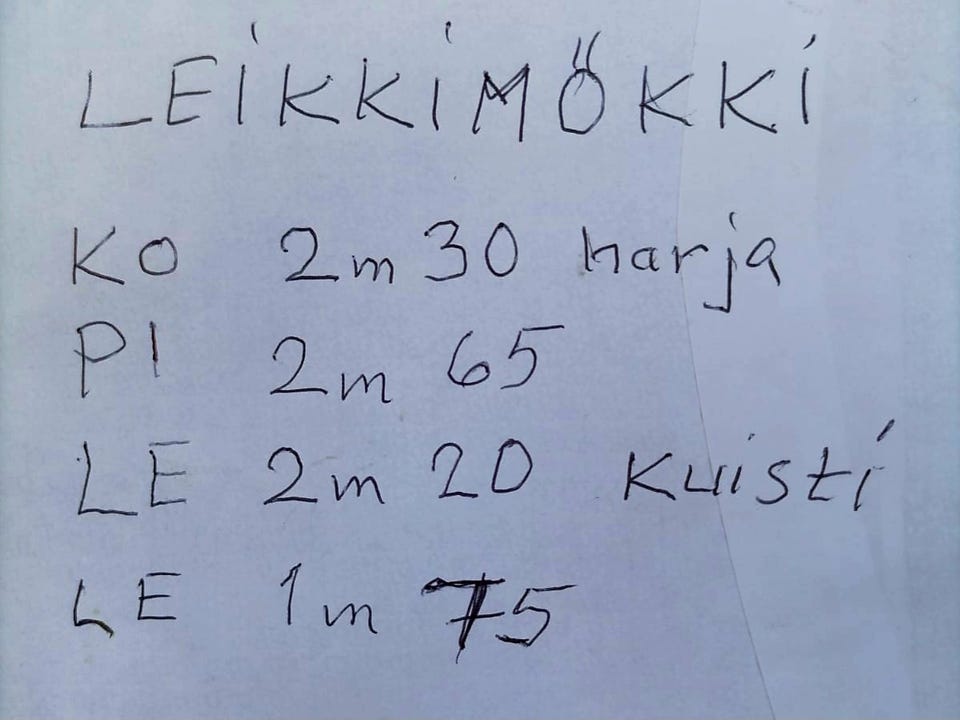 LEIKKIMÖKKI
KO 2m 30 harja
PI 2m 65
LE 2m 20 kuisti
LE 1m 75